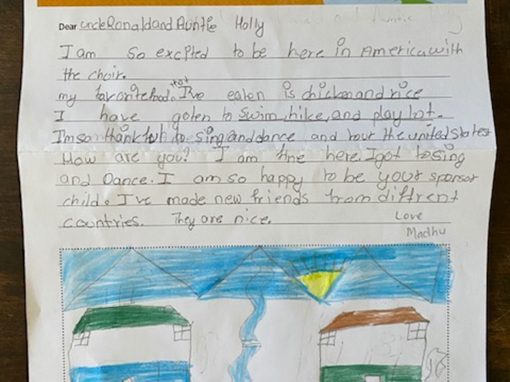 Dear uncle Ronald and Auntie Holly
I am so excited to be here in America with
the choir.
my favorite food that I've eaten is chicken and rice
I have goten to swim, hike, and play lot.
I'm so thankful to sing and dance and tour the united states
How are you? I am fine here. I got to sing
and Dance. I am so happy to be your sponsor
child. I've made new friends from diffrent
countries. They are nice.
Love
Madhu